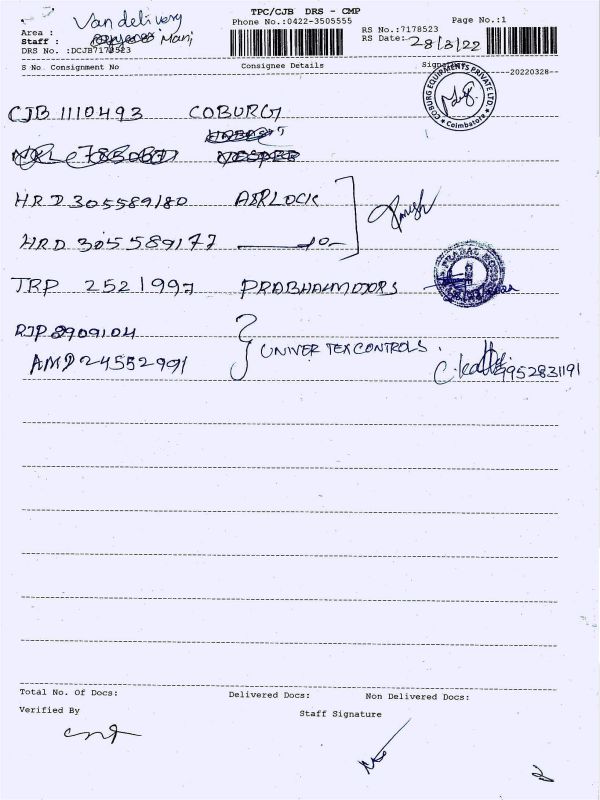 TPC/CJB DRS - CMP
Van delivery
Phone No.:0422-3505555
Page No.:1
Area :
RS No.:7178523
Staff : Mani
RS Date: 28/3/22
DRS No. :DCJB7178523
S No. Consignment No Consignee Details
20220328
COBURG EQUIPMENTS PRIVATE LTD.
Coimbatore
CJB 1110493 COBURG
HRD 305589180 AIRLOCK
HRD 305589177 -10-
TRP 2521997 PRABHALMOTORS
RJP 8909104
UNIVER TEX CONTROLS.
AMD 24552991
9952831191
Total No. Of Docs: Delivered Docs: Non Delivered Docs:
Verified By Staff Signature